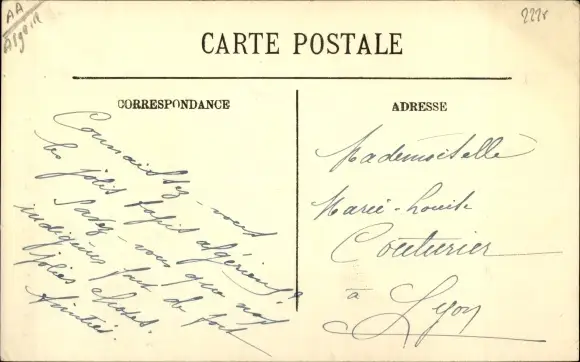 AA
Alger
222r
CARTE POSTALE
CORRESPONDANCE
ADRESSE
Connaissez-vous
les jolis tapis algériens?
Savez-vous que nos
indigènes font de fort
jolies choses.
Amitiés.
Mademoiselle
Marie-Louise
Couturier
à Lyon